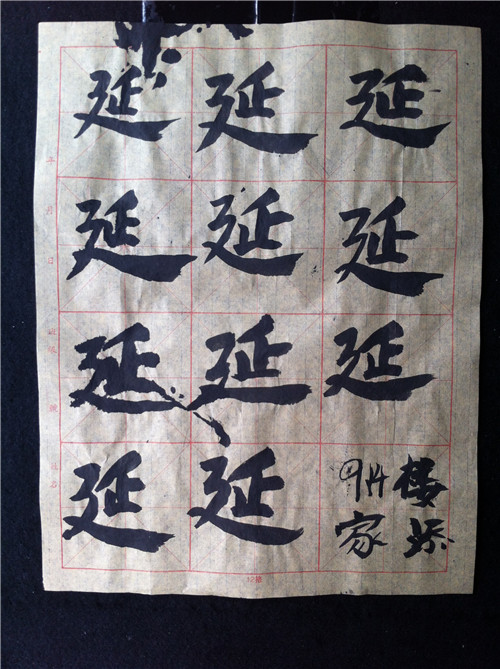 延 延 延
延 延 延
延 延 延
延 延
家
12格